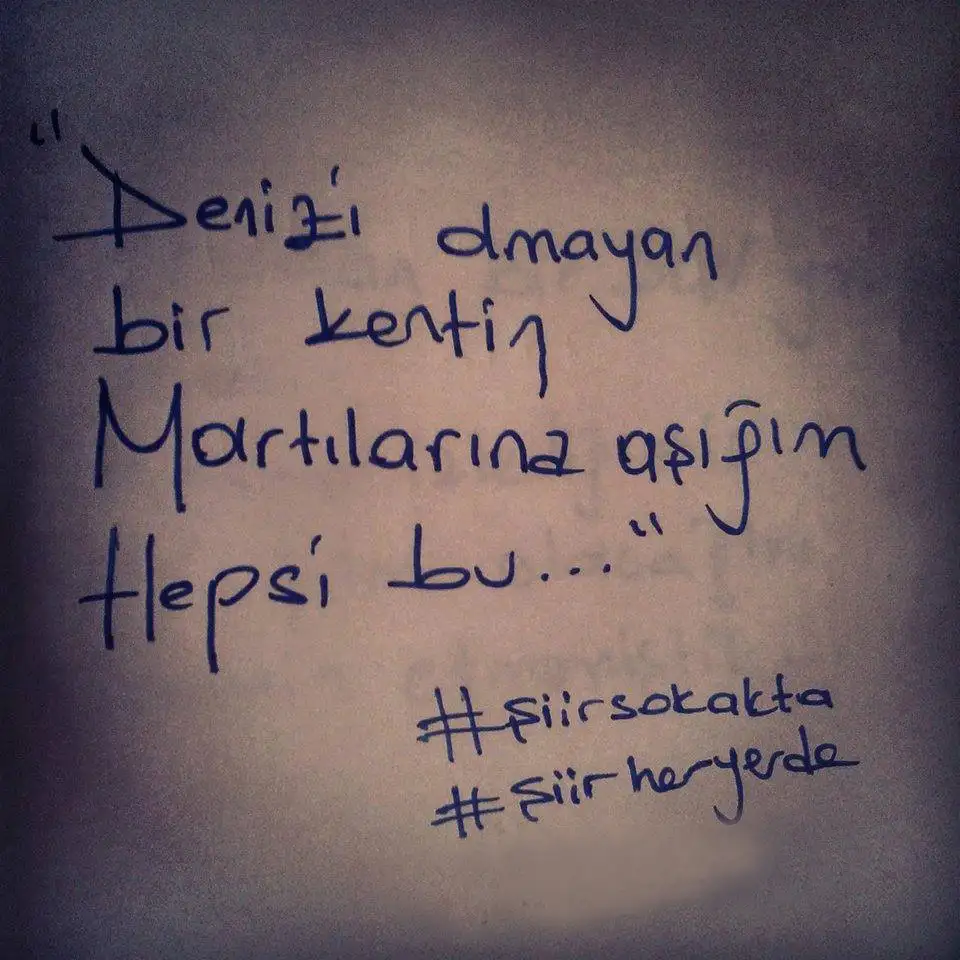 "Deniz'i olmayan
bir kentin
Martılarına aşığım
Hepsi bu..."
#şiirsokakta
#şiirheryerde